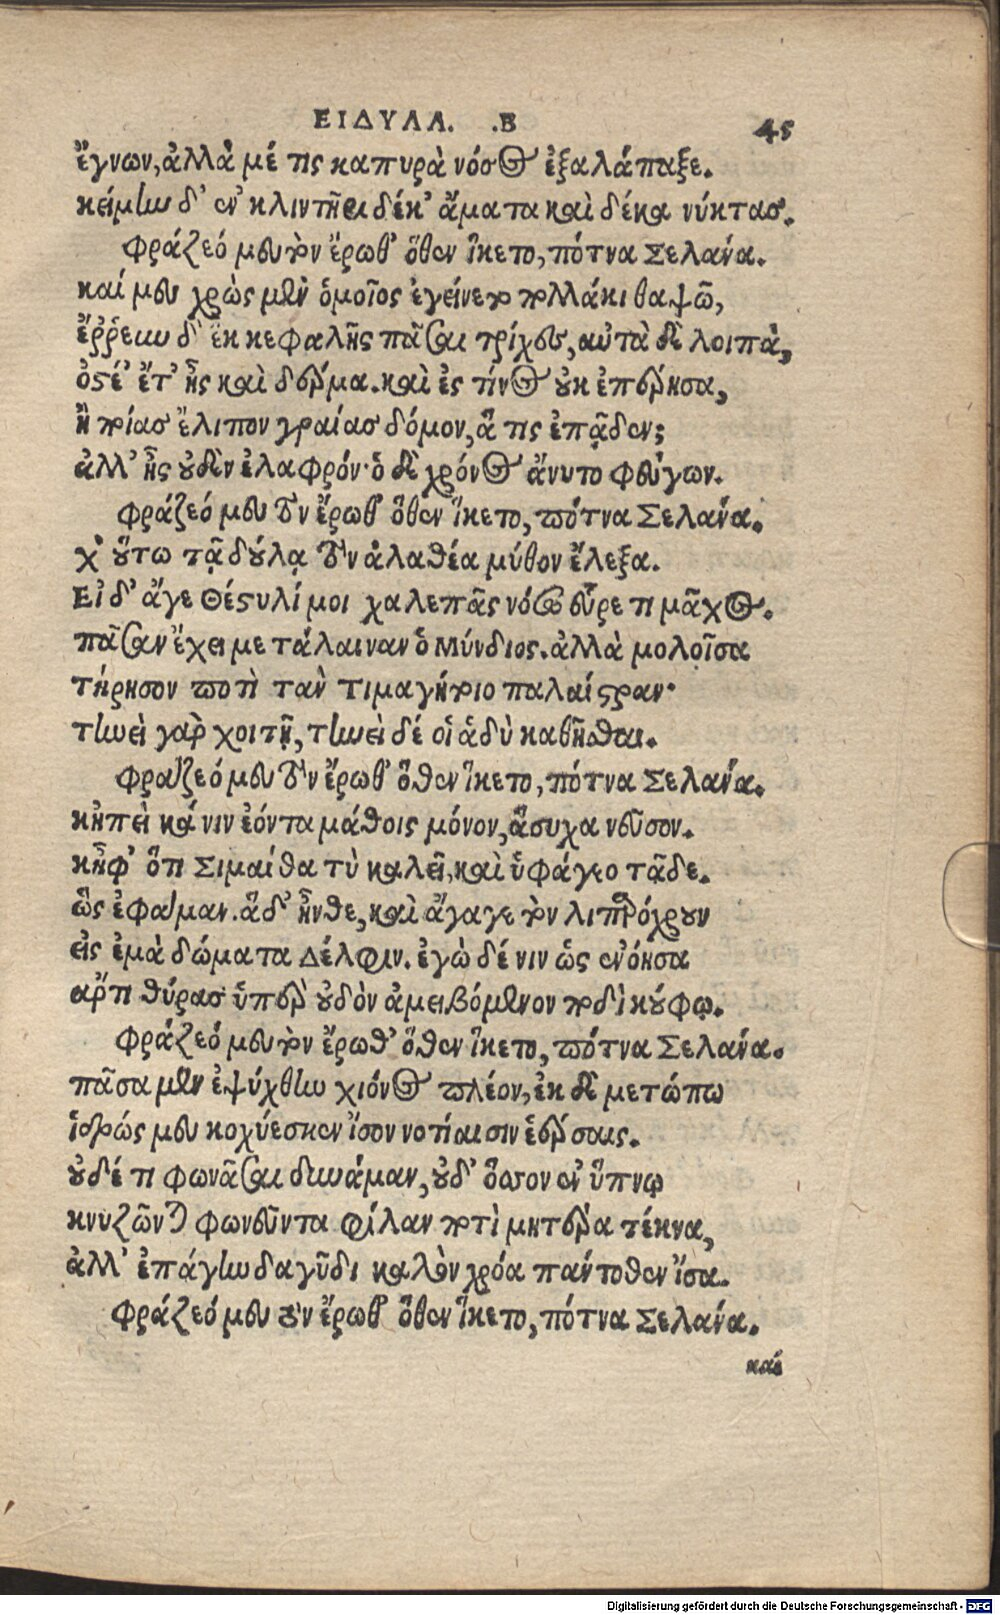 ΕΙΔΥΛΛ. .Β 45
ἔγνων, ἀλλὰ μέ τις καπυρὰ νόσος ἐξαλάπαξε.
κείμην δ’ ἐν κλιντῆρι δέκ’ ἄματα καὶ δέκα νύκτας.
Φράζεό μευ τὸν ἔρωθ’ ὅθεν ἵκετο, πότνα Σελάνα.
καί μευ χρὼς μὲν ὁμοῖος ἐγείνετο πολλάκι θαψῶ,
ἔῤῥευν δ’ ἐκ κεφαλῆς πᾶσαι τρίχες, αὐτὰ δὲ λοιπὰ,
ὀστέ’ ἔτ’ ἦς καὶ δέρμα. καὶ ἐς τίνος οὐκ ἐπέρησα,
ἢ ποίας ἔλιπον γραίας δόμον, ἅ τις ἐπᾷδεν;
ἀλλ’ ἦς οὐδὲν ἐλαφρόν· ὁ δὲ χρόνος ἄνυτο φεύγων.
Φράζεό μευ τὸν ἔρωθ’ ὅθεν ἵκετο, πότνα Σελάνα.
χ’ οὕτω τᾷ δούλᾳ τὸν ἀλαθέα μύθον ἔλεξα.
Εἰ δ’ ἄγε Θέστυλί μοι χαλεπᾶς νόσω εὗρέ τι μᾶχος.
πᾶσαν ἔχει με τάλαιναν ὁ Μύνδιος. ἀλλὰ μολοῖσα
τήρησον ποτὶ τὰν Τιμαγήτοιο παλαίστραν·
τηνεὶ γὰρ χοιτῇ, τηνεὶ δέ οἱ ἁδὺ καθῆσθαι.
Φράζεό μευ τὸν ἔρωθ’ ὅθεν ἵκετο, πότνα Σελάνα.
κἠπεὶ κά νιν ἐόντα μάθοις μόνον, ἅσυχα νεῦσον.
κἦφ’ ὅτι Σιμαίθα τὺ καλεῖ, καὶ ὑφάγεο τᾷδε.
ὣς ἐφάμαν. ἅδ’ ἦνθε, καὶ ἄγαγε τὸν λιπαρόχρουν
εἰς ἐμὰ δώματα Δέλφιν. ἐγὼ δέ νιν ὡς ἐνόησα
ἄρτι θύρας ὑπὲρ οὐδὸν ἀμειβόμενον ποδὶ κούφῳ.
Φράζεό μευ τὸν ἔρωθ’ ὅθεν ἵκετο, πότνα Σελάνα.
πᾶσα μὲν ἐψύχθην χιόνος πλέον, ἐκ δὲ μετώπω
ἱδρώς μευ κοχύεσκεν ἴσον νοτίαισιν ἐέρσαις.
οὐδέ τι φωνᾶσαι δυνάμαν, οὐδ’ ὅσσον ἐν ὕπνῳ
κνυζῶνται φωνεῦντα φίλαν ποτὶ ματέρα τέκνα,
ἀλλ’ ἐπάγην δαγῦδι καλὸν χρόα πάντοθεν ἴσα.
Φράζεό μευ τὸν ἔρωθ’ ὅθεν ἵκετο, πότνα Σελάνα.
καί
Digitalisierung gefördert durch die Deutsche Forschungsgemeinschaft - DFG